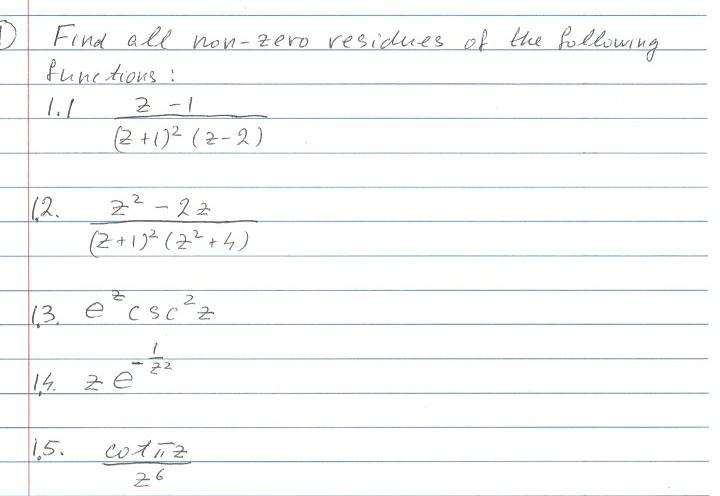 1) Find all non-zero residues of the following
functions:
1.1 \frac{z - 1}{(z+1)^2 (z-2)}
1.2. \frac{z^2 - 2z}{(z+1)^2 (z^2+4)}
1.3. e^z csc^2 z
1.4. z e^{-\frac{1}{z^2}}
1.5. \frac{cot πz}{z^6}